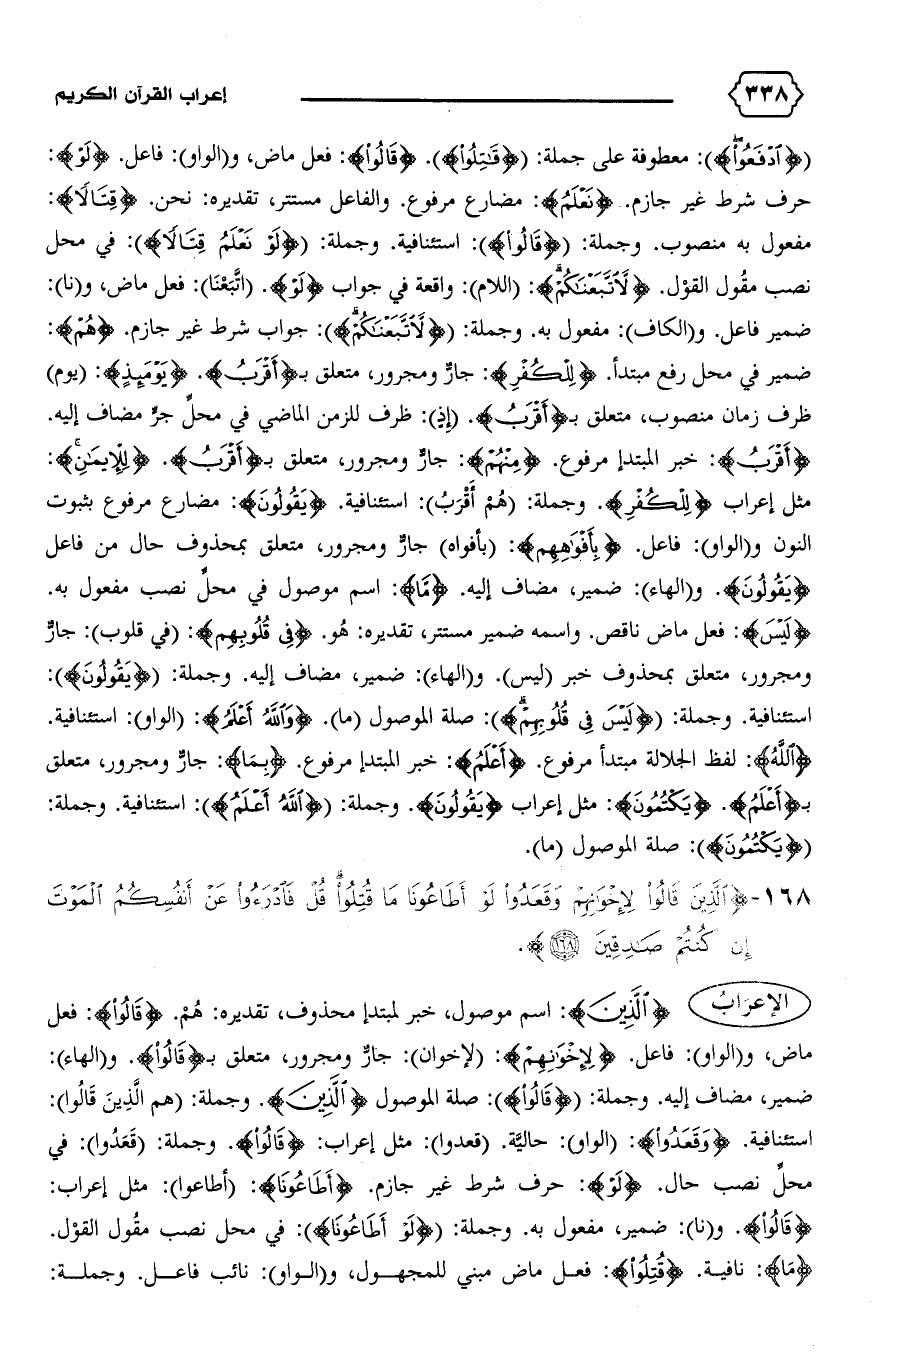 ٣٣٨ إعراب القرآن الكريم
(﴿ٱدۡفَعُواْۖ﴾): معطوفة على جملة: (﴿قَٰتِلُواْ﴾). ﴿قَالُواْ﴾: فعل ماض، و(الواو): فاعل. ﴿لَوۡ﴾:
حرف شرط غير جازم. ﴿نَعۡلَمُ﴾: مضارع مرفوع. والفاعل مستتر، تقديره: نحن. ﴿قِتَالٗا﴾:
مفعول به منصوب. وجملة: (﴿قَالُواْ﴾): استئنافية. وجملة: (﴿لَوۡ نَعۡلَمُ قِتَالٗا﴾): في محل
نصب مقُول القوْل. ﴿لَّٱتَّبَعۡنَٰكُمۡۗ﴾: (اللام): واقعة في جواب ﴿لَوۡ﴾. (اتَّبَعْنَا): فعل ماض، و(نا):
ضمير فاعل. و(الكاف): مفعول به. وجملة: (﴿لَّٱتَّبَعۡنَٰكُمۡۗ﴾): جواب شرط غير جازم. ﴿هُمۡ﴾:
ضمير في محل رفع مبتدأ. ﴿لِلۡكُفۡرِ﴾: جارٌّ ومجرور، متعلق بـ﴿أَقۡرَبُ﴾. ﴿يَوۡمَئِذٍ﴾: (يوم)
ظرف زمان منصوب، متعلق بـ﴿أَقۡرَبُ﴾. (إذِ): ظرف للزمن الماضي في محلِّ جرٍّ مضاف إليه.
﴿أَقۡرَبُ﴾: خبر المبتدإ مرفوع. ﴿مِنۡهُمۡ﴾: جارٌّ ومجرور، متعلق بـ﴿أَقۡرَبُ﴾. ﴿لِلۡإِيمَٰنِۚ﴾:
مثل إعراب ﴿لِلۡكُفۡرِ﴾. وجملة: (هُمْ أَقْرَبُ): استئنافية. ﴿يَقُولُونَ﴾: مضارع مرفوع بثبوت
النون و(الواو): فاعل. ﴿بِأَفۡوَٰهِهِم﴾: (بأفواه) جارٌّ ومجرور، متعلق بمحذوف حال من فاعل
﴿يَقُولُونَ﴾. و(الهاء): ضمير، مضاف إليه. ﴿مَّا﴾: اسم موصول في محلِّ نصب مفعول به.
﴿لَيۡسَ﴾: فعل ماض ناقص. واسمه ضمير مستتر، تقديره: هُو. ﴿فِي قُلُوبِهِمۡ﴾: (في قلوب): جارٌّ
ومجرور، متعلق بمحذوف خبر (ليس). و(الهاء): ضمير، مضاف إليه. وجملة: (﴿يَقُولُونَ﴾):
استئنافية. وجملة: (﴿لَيۡسَ فِي قُلُوبِهِمۡۚ﴾): صلة الموصول (ما). ﴿وَٱللَّهُ أَعۡلَمُ﴾: (الواو): استئنافية.
﴿ٱللَّهُ﴾: لفظ الجلالة مبتدأ مرفوع. ﴿أَعۡلَمُ﴾: خبر المبتدإ مرفوع. ﴿بِمَا﴾: جارٌّ ومجرور، متعلق
بـ﴿أَعۡلَمُ﴾. ﴿يَكۡتُمُونَ﴾: مثل إعراب ﴿يَقُولُونَ﴾. وجملة: (﴿ٱللَّهُ أَعۡلَمُ﴾): استئنافية. وجملة:
(﴿يَكۡتُمُونَ﴾): صلة الموصول (ما).
١٦٨- ﴿ٱلَّذِينَ قَالُواْ لِإِخۡوَٰنِهِمۡ وَقَعَدُواْ لَوۡ أَطَاعُونَا مَا قُتِلُواْۗ قُلۡ فَٱدۡرَءُواْ عَنۡ أَنفُسِكُمُ ٱلۡمَوۡتَ
إِن كُنتُمۡ صَٰدِقِينَ ١٦٨﴾.
الإعرَابُ ﴿ٱلَّذِينَ﴾: اسم موصول، خبر لمبتدإ محذوف، تقديره: هُمْ. ﴿قَالُواْ﴾: فعل
ماض، و(الواو): فاعل. ﴿لِإِخۡوَٰنِهِمۡ﴾: (لإخوان): جارٌّ ومجرور، متعلق بـ﴿قَالُواْ﴾. و(الهاء):
ضمير، مضاف إليه. وجملة: (﴿قَالُواْ﴾): صلة الموصول ﴿ٱلَّذِينَ﴾. وجملة: (هم الَّذِينَ قَالُوا):
استئنافية. ﴿وَقَعَدُواْ﴾: (الواو): حاليَّة. (قعدوا): مثل إعراب: ﴿قَالُواْ﴾. وجملة: (قَعَدُوا): في
محلِّ نصب حال. ﴿لَوۡ﴾: حرف شرط غير جازم. ﴿أَطَاعُونَا﴾: (أطاعوا): مثل إعراب:
﴿قَالُواْ﴾. و(نا): ضمير، مفعول به. وجملة: (﴿لَوۡ أَطَاعُونَا﴾): في محل نصب مقُول القوْل.
﴿مَا﴾: نافية. ﴿قُتِلُواْ﴾: فعل ماض مبني للمجهول، و(الواو): نائب فاعل. وجملة: